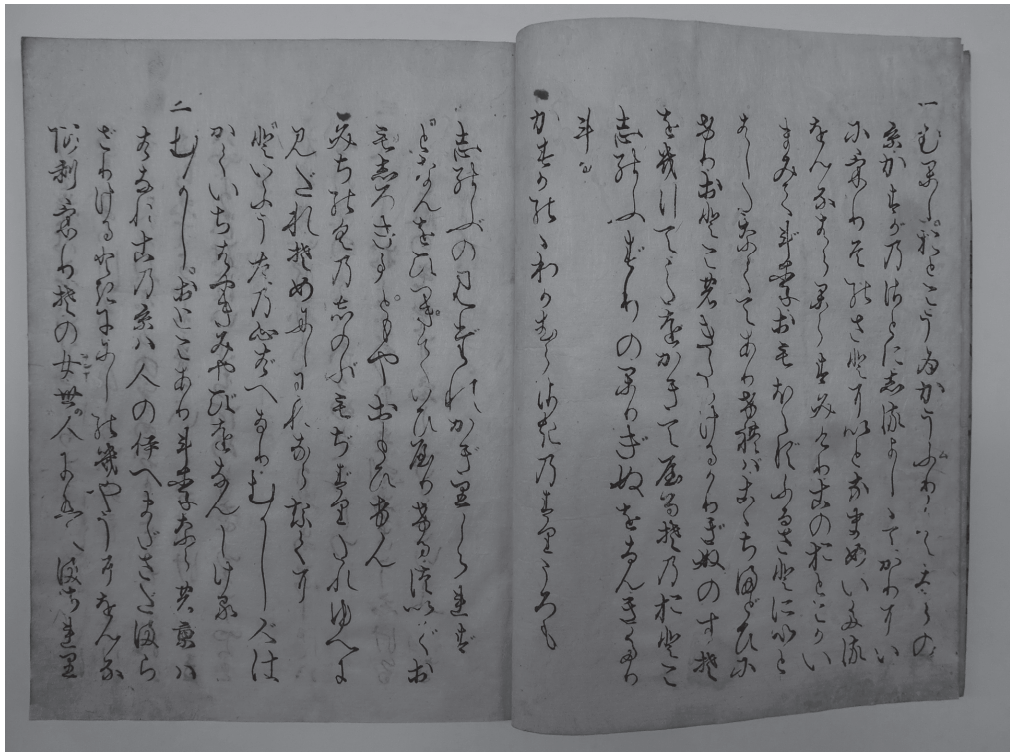 一むかし。おとこうゐかうふりしてならの
京かすがのさとにしるよしゝてかりにい
にけりそのさとにいとなまめいたる
をんなはらからすみけりこのおとこかい
まみてけりおもほえずふるさとにいと
はしたなくてありければこゝちまどひに
けりおとこのきたりけるかりぎぬのすそ
をきりてうたをかきてやるそのおとこ
しのふずりのかりぎぬをなんきたり
ける
かすかのゝわかむらさきのすりころも
しのぶのみだれかぎりしられず
となんをひつぎていひやりけるついでお
もしろきことゝもやおもひけん
みちのくのしのぶもぢずりたれゆへに
みだれそめにしわれならなくに
といふうたの心ばへなりむかし人は
かくいちはやきみやびをなんしける
二むかし。おとこありけりならの京は
はなれこの京は人の家まださだまら
ざりけるときににしの京にをんな
ありけりその女世人にはまされり